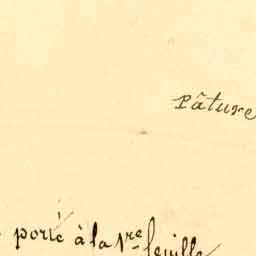 Pâture
porté à la 1re feuille